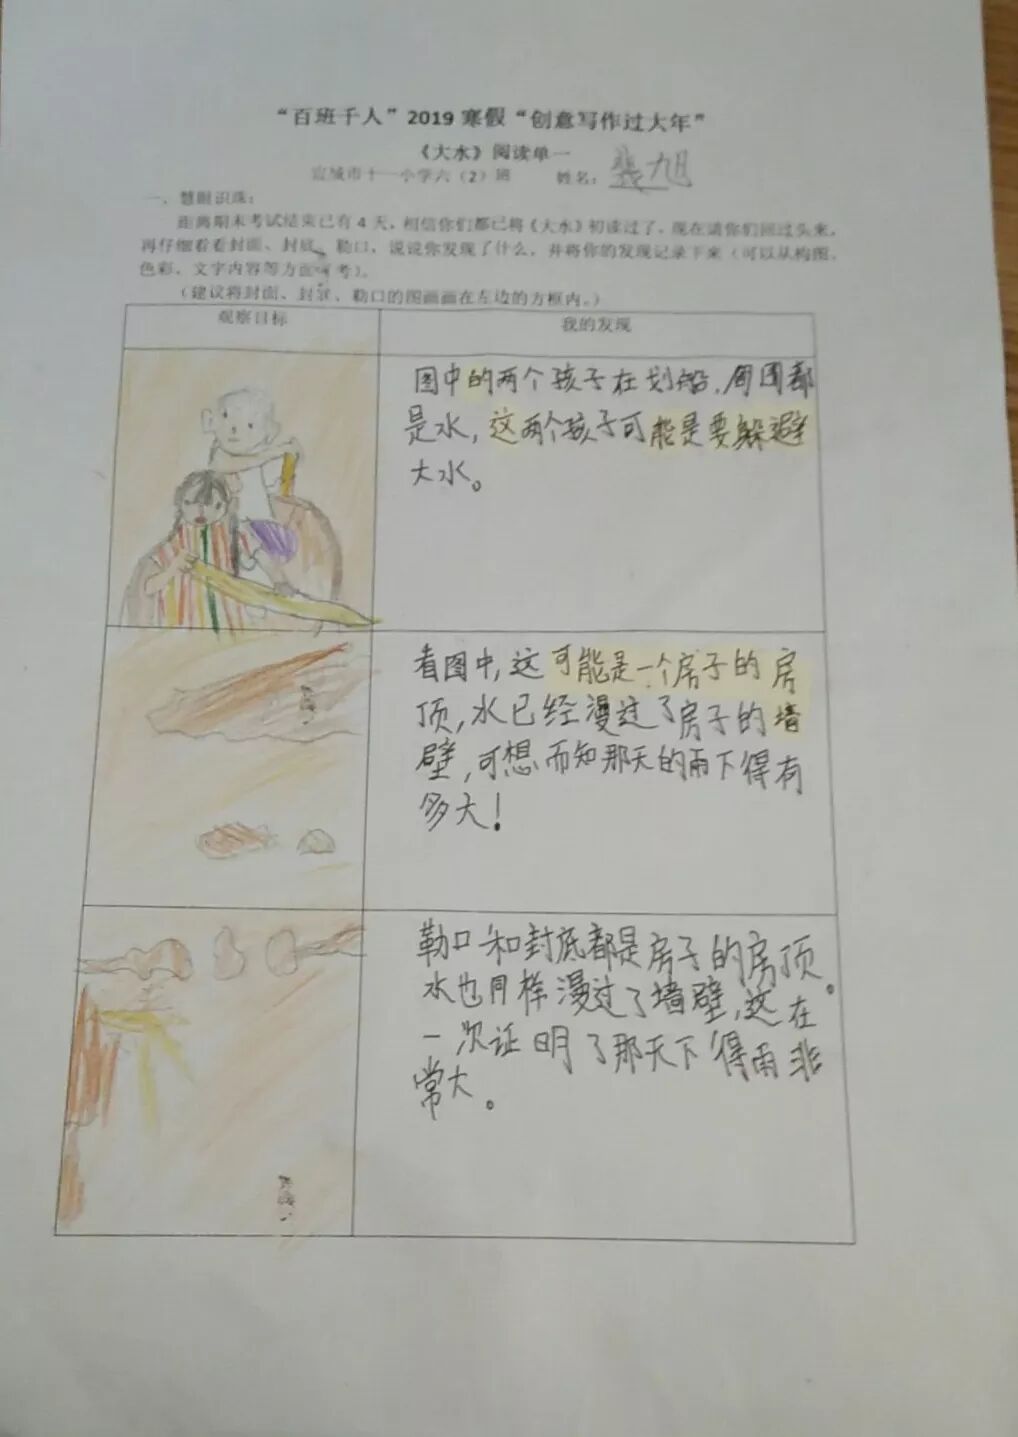 “百班千人”2019寒假“创意写作过大年”
《大水》阅读单一
宣城市十一小学六（2）班 姓名：裴旭
一、慧眼识珠：
距离期末考试结束已有4天，相信你们都已将《大水》初读过了，现在请你们回过头来，
再仔细看看封面、封底、勒口，说说你发现了什么，并将你的发现记录下来（可以从构图、
色彩、文字内容等方面 考）。
（建议将封面、封底、勒口的图画画在左边的方框内。）
观察目标 我的发现
图中的两个孩子在划船，周围都
是水，这两个孩子可能是要躲避
大水。
看图中，这可能是一个房子的房
顶，水已经漫过了房子的墙
壁，可想而知那天的雨下得有
多大！
勒口和封底都是房子的房顶。
水也同样漫过了墙壁，这在
一次证明了那天下得雨非
常大。